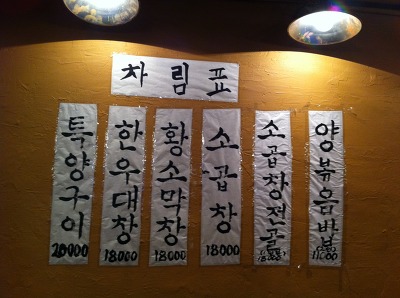 차림표
특양구이
20000
한우대창
18000
황소막창
18000
소곱창
18000
소곱창전골
양볶음밥
11000